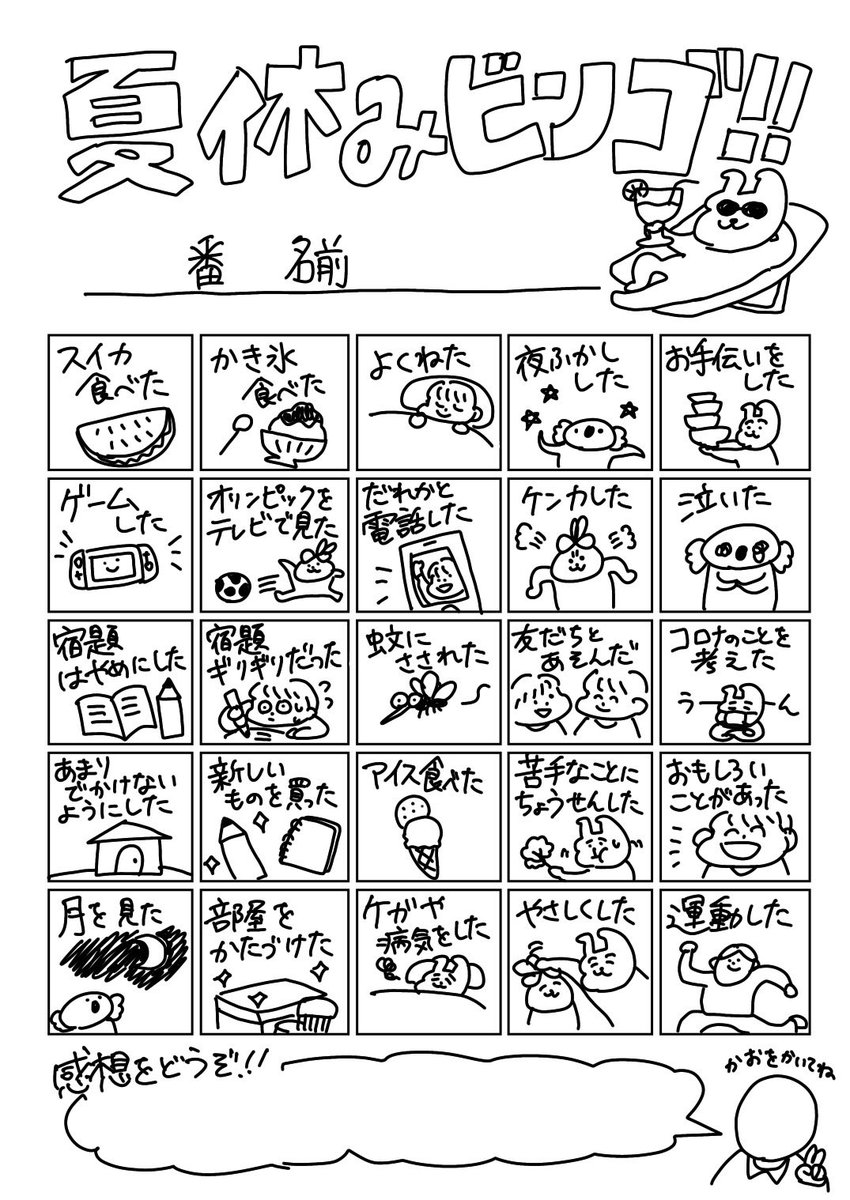 夏休みビンゴ!!
番 名前
スイカ
食べた
かき氷
食べた
よくねた
夜ふかし
した
お手伝いを
した
ゲーム
した
オリンピックを
テレビで見た
だれかと
電話した
ケンカした
泣いた
宿題
はやめにした
宿題
ギリギリだった
蚊に
さされた
友だちと
あそんだ
コロナのことを
考えた
うーーん
あまり
でかけない
ようにした
新しい
ものを買った
アイス食べた
苦手なことに
ちょうせんした
おもしろい
ことがあった
月を見た
部屋を
かたづけた
ケガや
病気をした
やさしくした
運動した
感想をどうぞ!!
かおをかいてね